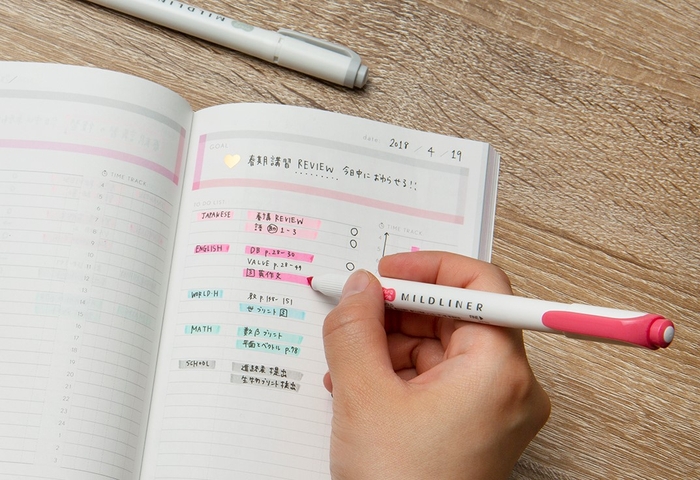 MILDLINER
DATE
2018 / 4 / 19
春期講習 REVIEW 今日中におわらせる!!
TO DO LIST
TIME TRACK
TIME TRACK
JAPANESE
春講 REVIEW
1-3
ENGLISH
DB p.28-30
VALUE p.28-49
英作文
WORLD H
p.148-151
世プリント
MATH
数Bプリント
平面ベクトル p.98
SCHOOL
提出
生物プリント提出
MILDLINER